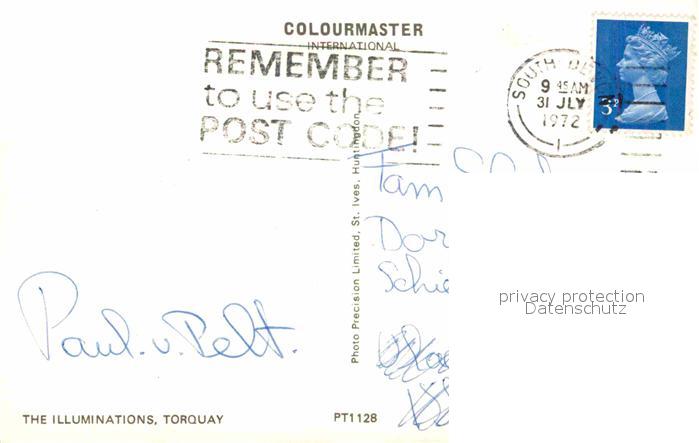 COLOURMASTER
INTERNATIONAL
REMEMBER
to use the
POST CODE!
SOUTH DEVON
9 45 AM
31 JLY
1972
1
Photo Precision Limited, St. Ives, Huntingdon
Fam
Dor
Schie
privacy protection
Datenschutz
Paul. v. Pelt.
THE ILLUMINATIONS, TORQUAY
PT1128